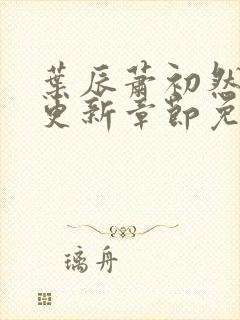 葉辰蕭初然
更新章節免
璃舟